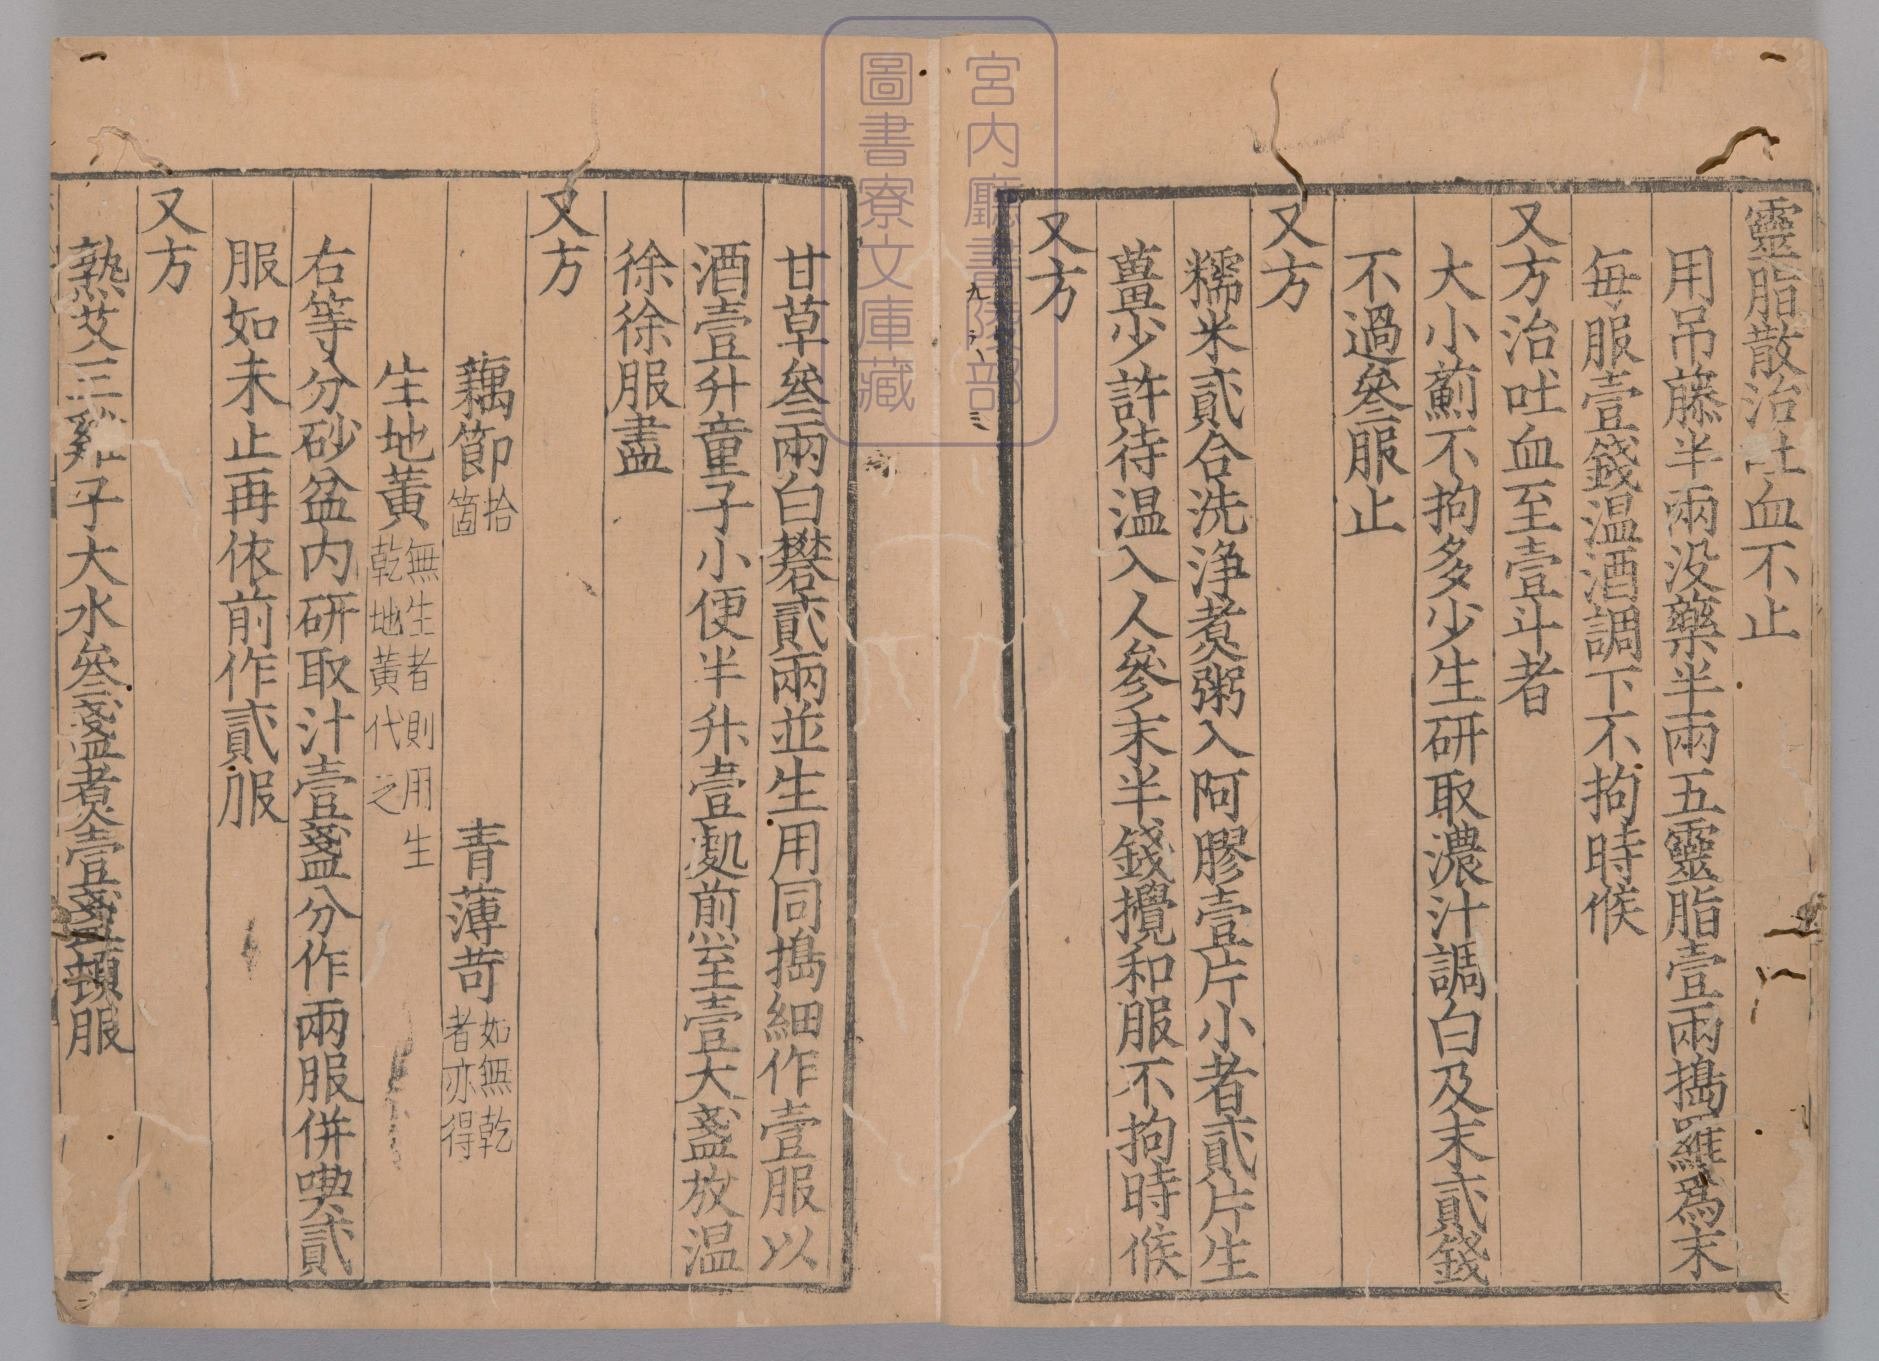 靈脂散治吐血不止
用吊藤半兩没藥半兩五靈脂壹兩搗羅爲末
每服壹錢温酒調下不拘時候
又方治吐血至壹斗者
大小薊不拘多少生研取濃汁調白及末貳錢
不過叄服止
又方
糯米貳合洗浄煮粥入阿膠壹片小者貳片生
薑少許待温入人參末半錢攪和服不拘時候
又方
甘草叄兩白礬貳兩並生用同搗細作壹服以
酒壹升童子小便半升壹處煎至壹大盞放温
徐徐服盡
又方
藕節拾箇 青薄苛如無乾者亦得
生地黄無生者則用生乾地黄代之
右等分砂盆内研取汁壹盞分作兩服併喫貳
服如未止再依前作貳服
又方
熟艾三雞子大水叄盞煮壹盞頓服
宮内廳書陵部
圖書寮文庫藏